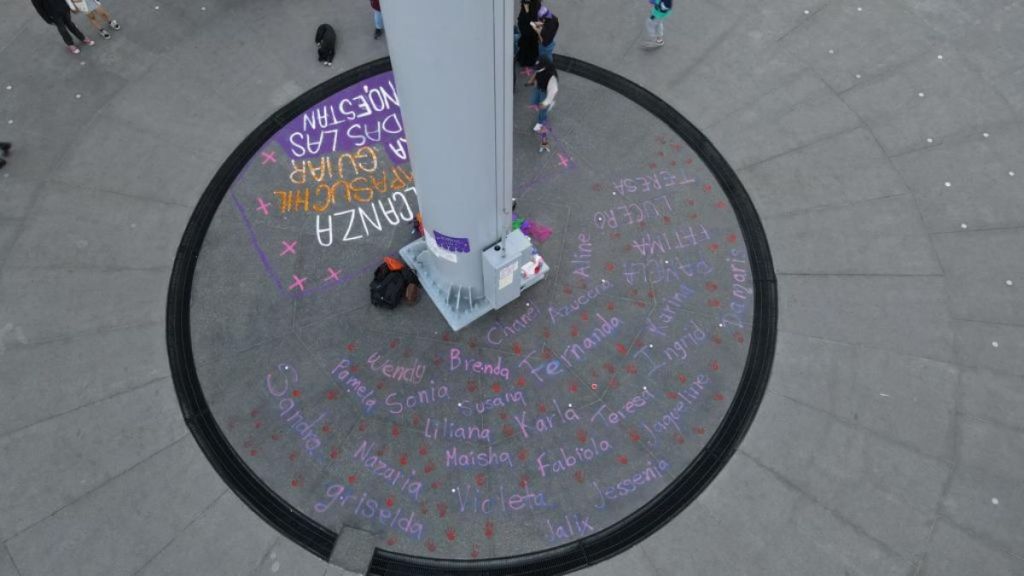 CANZA
PASUCHIL
GUIAR
DAS LAS
NO ESTAN
TERESA
LUCERO
FATIMA
Aline
Azucena
Chanel
Fernanda
Karina
Ingrid
Wendy
Brenda
Pamela
Sonia
Susana
Sandra
Liliana
Karla
Teresa
Jaqueline
Maisha
Fabiola
Nazaria
Violeta
Jessenia
griselda
Jalix